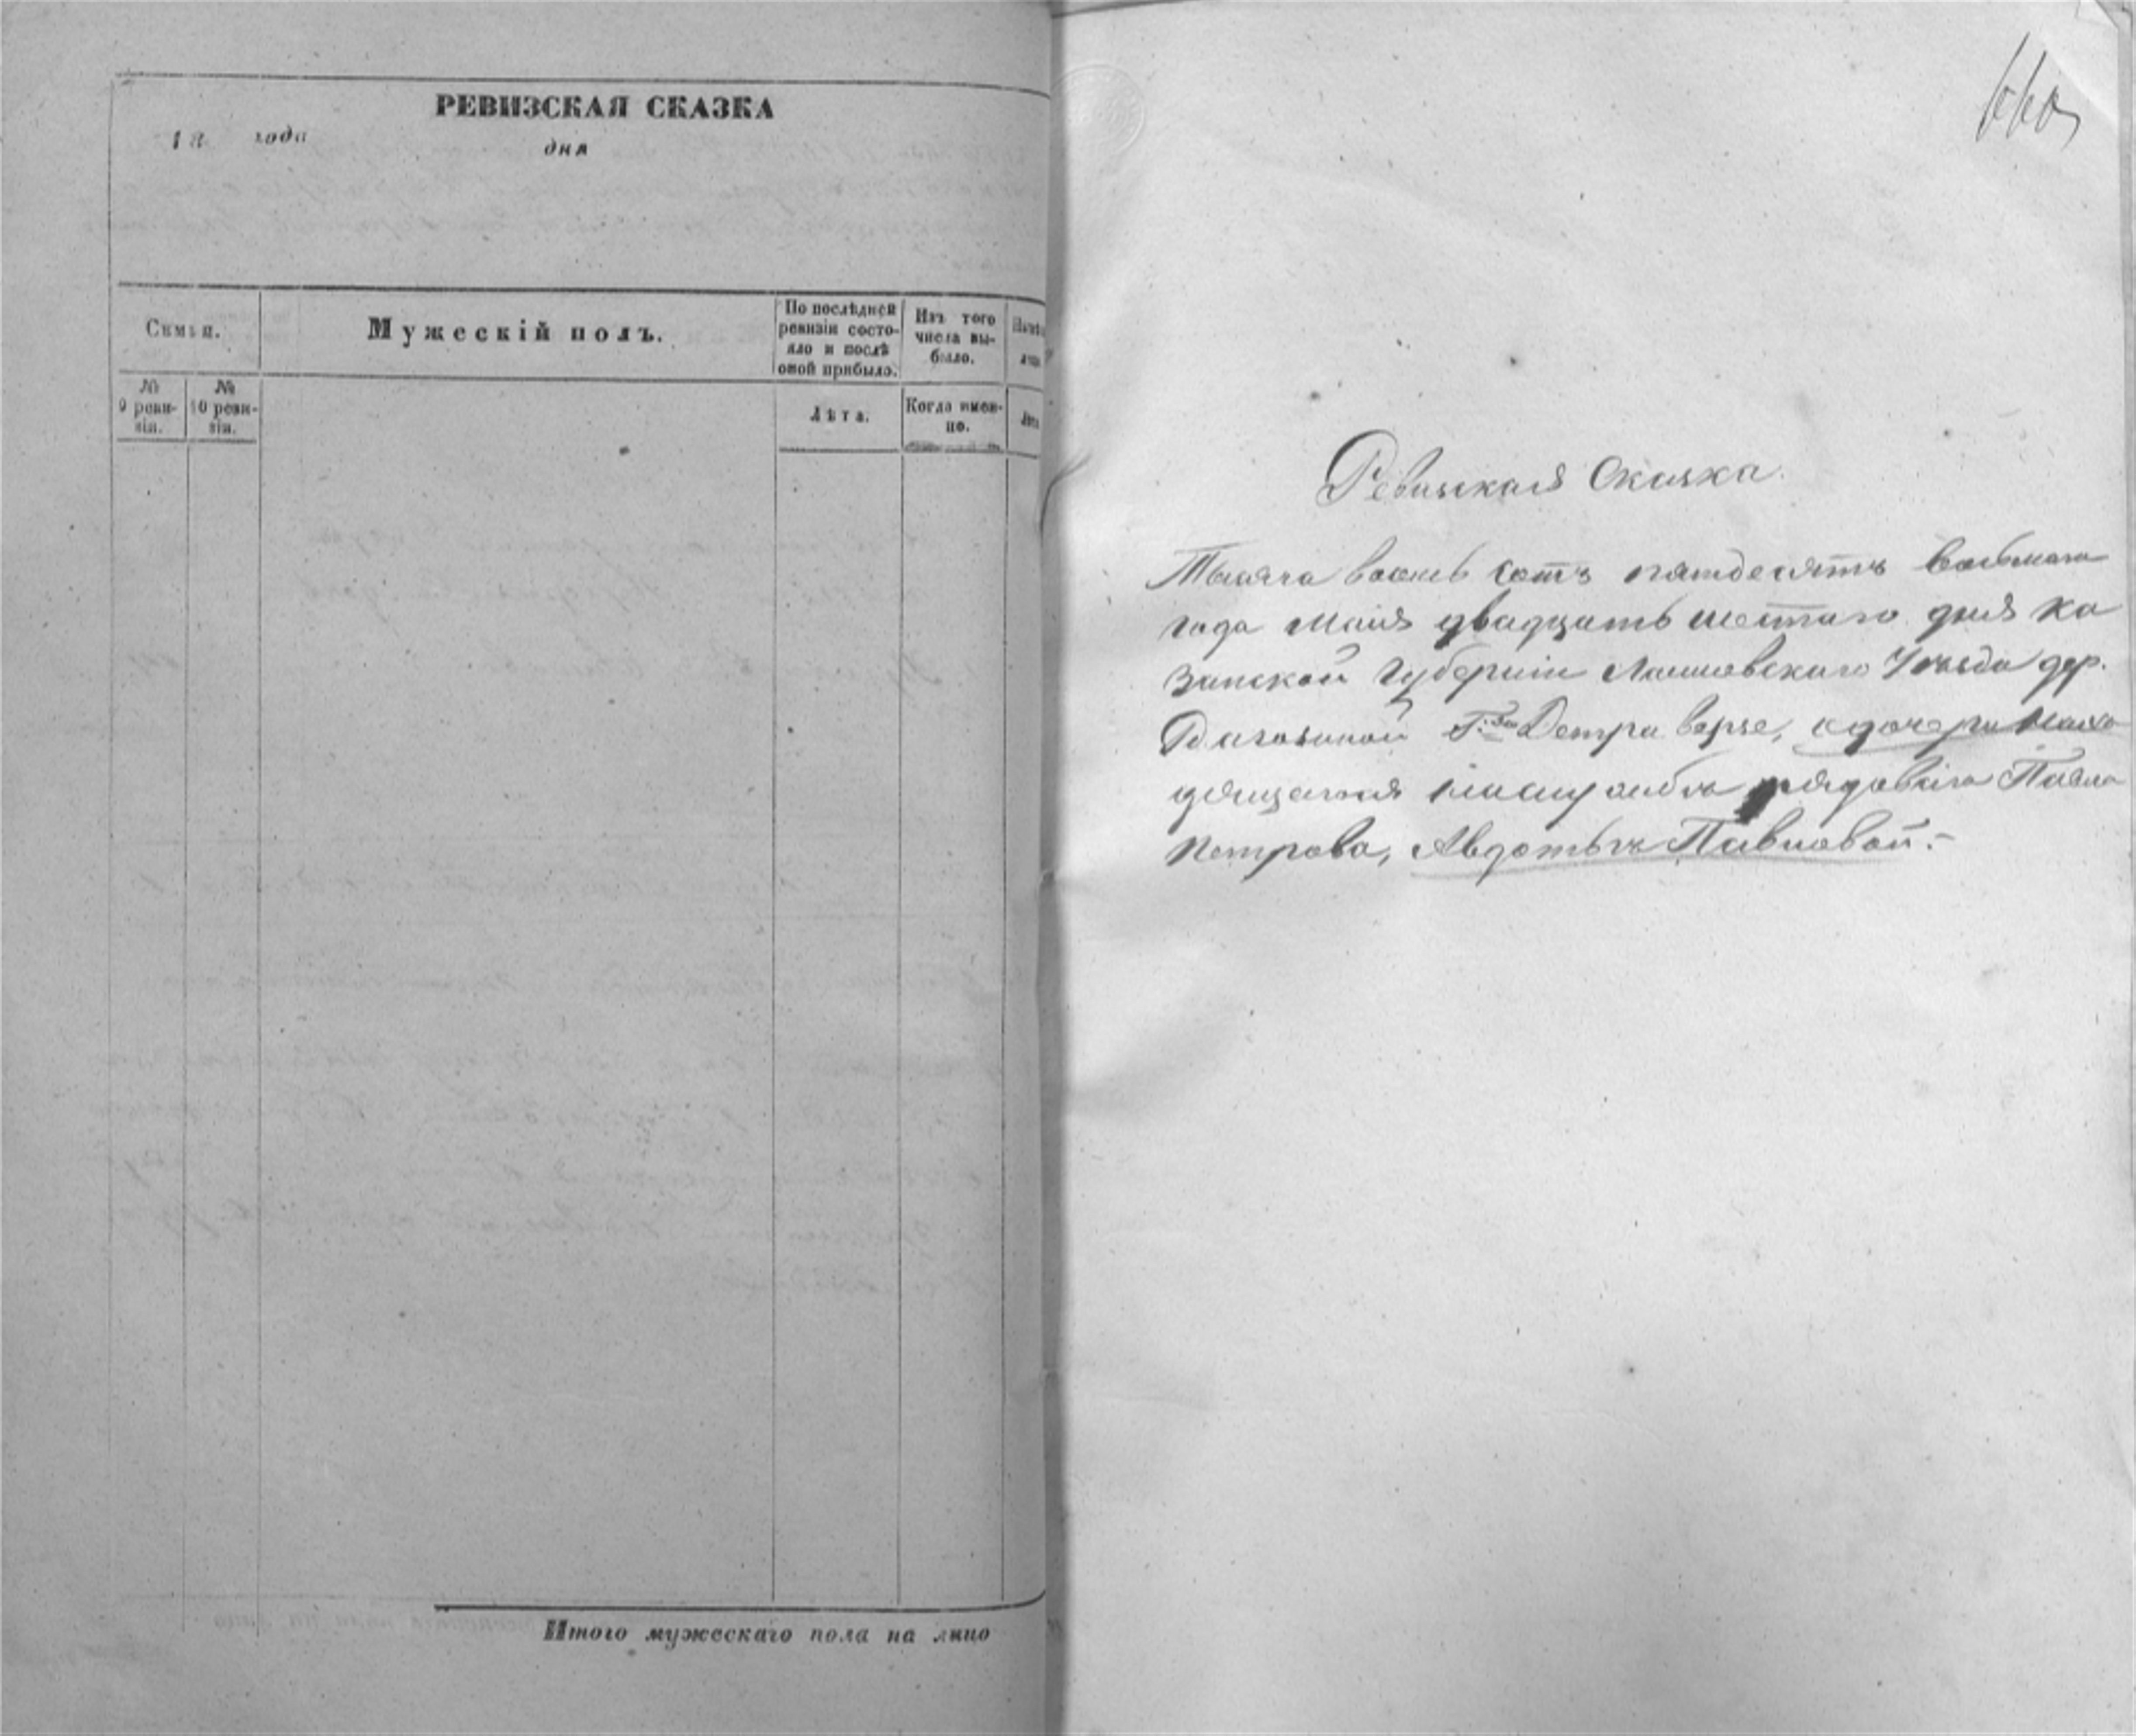 РЕВИЗСКАЯ СКАЗКА
18 года
дня
Семья.
Мужескій полъ.
По послѣдней ревизіи состояло и послѣ оной прибыло.
Изъ того числа выбыло.
№ 9 ревизіи.
№ 10 ревизіи.
Лѣта.
Когда именно.
Итого мужескаго пола на лицо
Ревизская Сказка.
Тысяча восемь сотъ пятдесятъ восьмаго
года Мая двадцать шестаго дня Ка
занской Губерніи Лаишевскаго Уѣзда дер.
о дочери нахо
дящагося рядоваго Павла
Петрова, Авдотьѣ Павловой.-